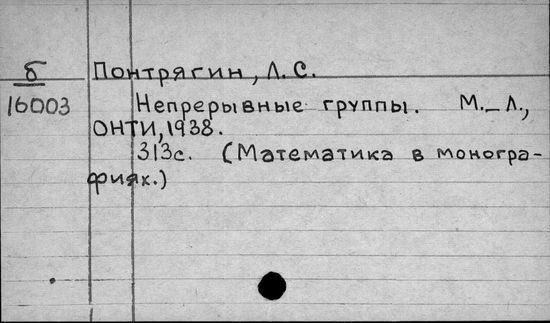 б
16003
Понтрягин, Л. С.
Непрерывные группы. М._Л.,
ОНТИ, 1938.
313с. (Математика в моногра-
фиях.)